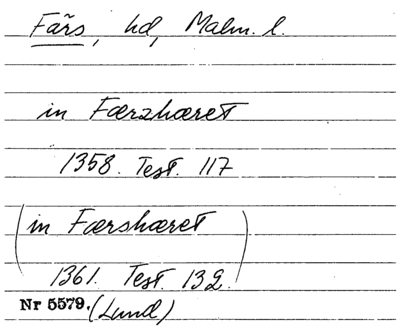 Färs, hd, Malm. l.
in Færzhæret
1358. Test. 117
(in Færshæret)
1361. Test. 132.
Nr 5579. (Lund)